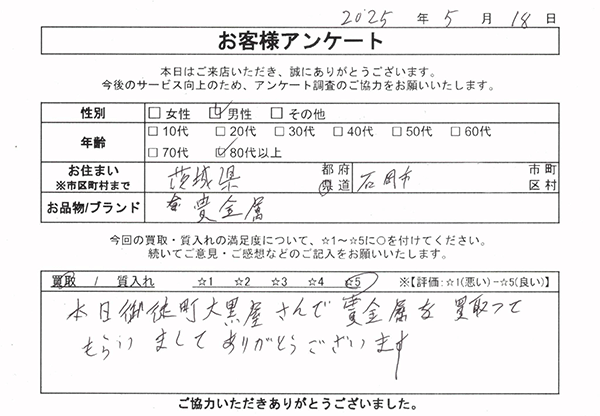 2025 年 5 月 18 日
お客様アンケート
本日はご来店いただき、誠にありがとうございます。
今後のサービス向上のため、アンケート調査のご協力をお願いいたします。
性別 □ 女性 ☑ 男性 □ その他
年齢 □ 10代 □ 20代 □ 30代 □ 40代 □ 50代 □ 60代
□ 70代 ☑ 80代以上
お住まい ※市区町村まで 茨城県 都 府 県 道 石岡市 市 町 区 村
お品物/ブランド 貴金属
今回の買取・質入れの満足度について、☆1～☆5に○を付けてください。
続いてご意見・ご感想などのご記入をお願いいたします。
買取 / 質入れ ☆1 ☆2 ☆3 ☆4 ☆5 ※【評価:☆1(悪い)－☆5(良い)】
本日御徒町大黒屋さんで貴金属を買取って
もらいましてありがとうございます
ご協力いただきありがとうございました。